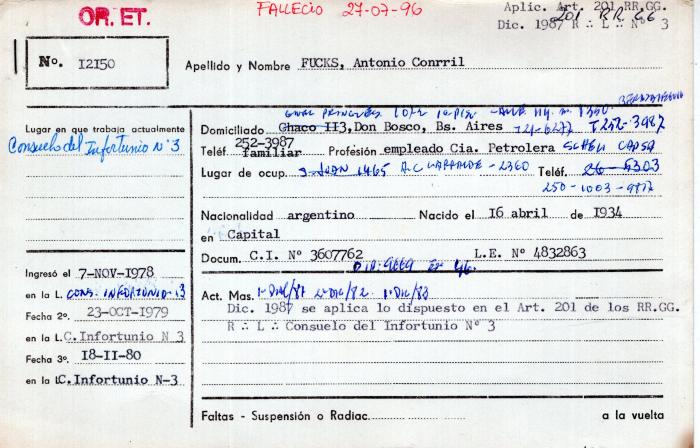 OR. ET.
FALLECIO 27-07-96
Aplic. Art. 201 RR.GG.
Dic. 1987 R∴L∴ Nº 3
201 RR GG
Nº. 12150
Apellido y Nombre FUCKS, Antonio Conrril
Lugar en que trabaja actualmente
Consuelo del Infortunio Nº 3
Domiciliado Chaco 113, Don Bosco, Bs. Aires
T252-3987
252-3987
Teléf. familiar Profesión empleado Cia. Petrolera
Lugar de ocup. Teléf.
Nacionalidad argentino Nacido el 16 abril de 1934
en Capital
Docum. C.I. Nº 3607762 L.E. Nº 4832863
Ingresó el 7-NOV-1978
en la L. CONS. INFORTUNIO-3
Fecha 2º. 23-OCT-1979
en la L. C. Infortunio N 3
Fecha 3º. 18-11-80
en la L C. Infortunio N-3
Act. Mas. 1-Dic/81 2-Dic/82 1-Dic/83
Dic. 1987 se aplica lo dispuesto en el Art. 201 de los RR.GG.
R∴L∴ Consuelo del Infortunio Nº 3
Faltas - Suspensión o Radiac.
a la vuelta